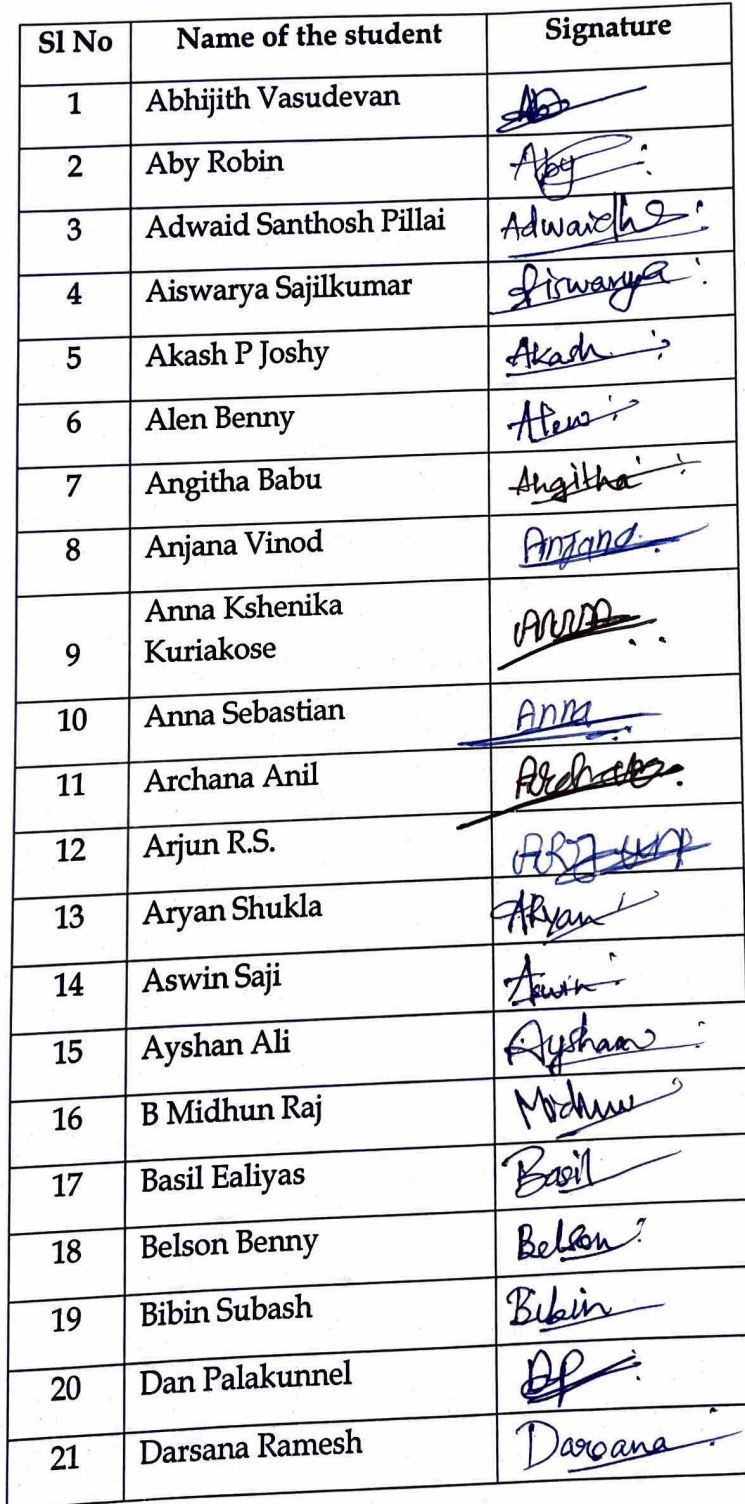 Sl No Name of the student Signature
1 Abhijith Vasudevan
2 Aby Robin Aby
3 Adwaid Santhosh Pillai Adwaidh
4 Aiswarya Sajilkumar Aiswarya
5 Akash P Joshy Akash
6 Alen Benny Alen
7 Angitha Babu Angitha
8 Anjana Vinod Anjana
Anna Kshenika
9 Kuriakose Anna
10 Anna Sebastian Anna
11 Archana Anil Archana
12 Arjun R.S. ARJUN
13 Aryan Shukla ARyan
14 Aswin Saji Aswin
15 Ayshan Ali Ayshan
16 B Midhun Raj Midhun
17 Basil Ealiyas Basil
18 Belson Benny Belson
19 Bibin Subash Bibin
20 Dan Palakunnel DP
21 Darsana Ramesh Darsana